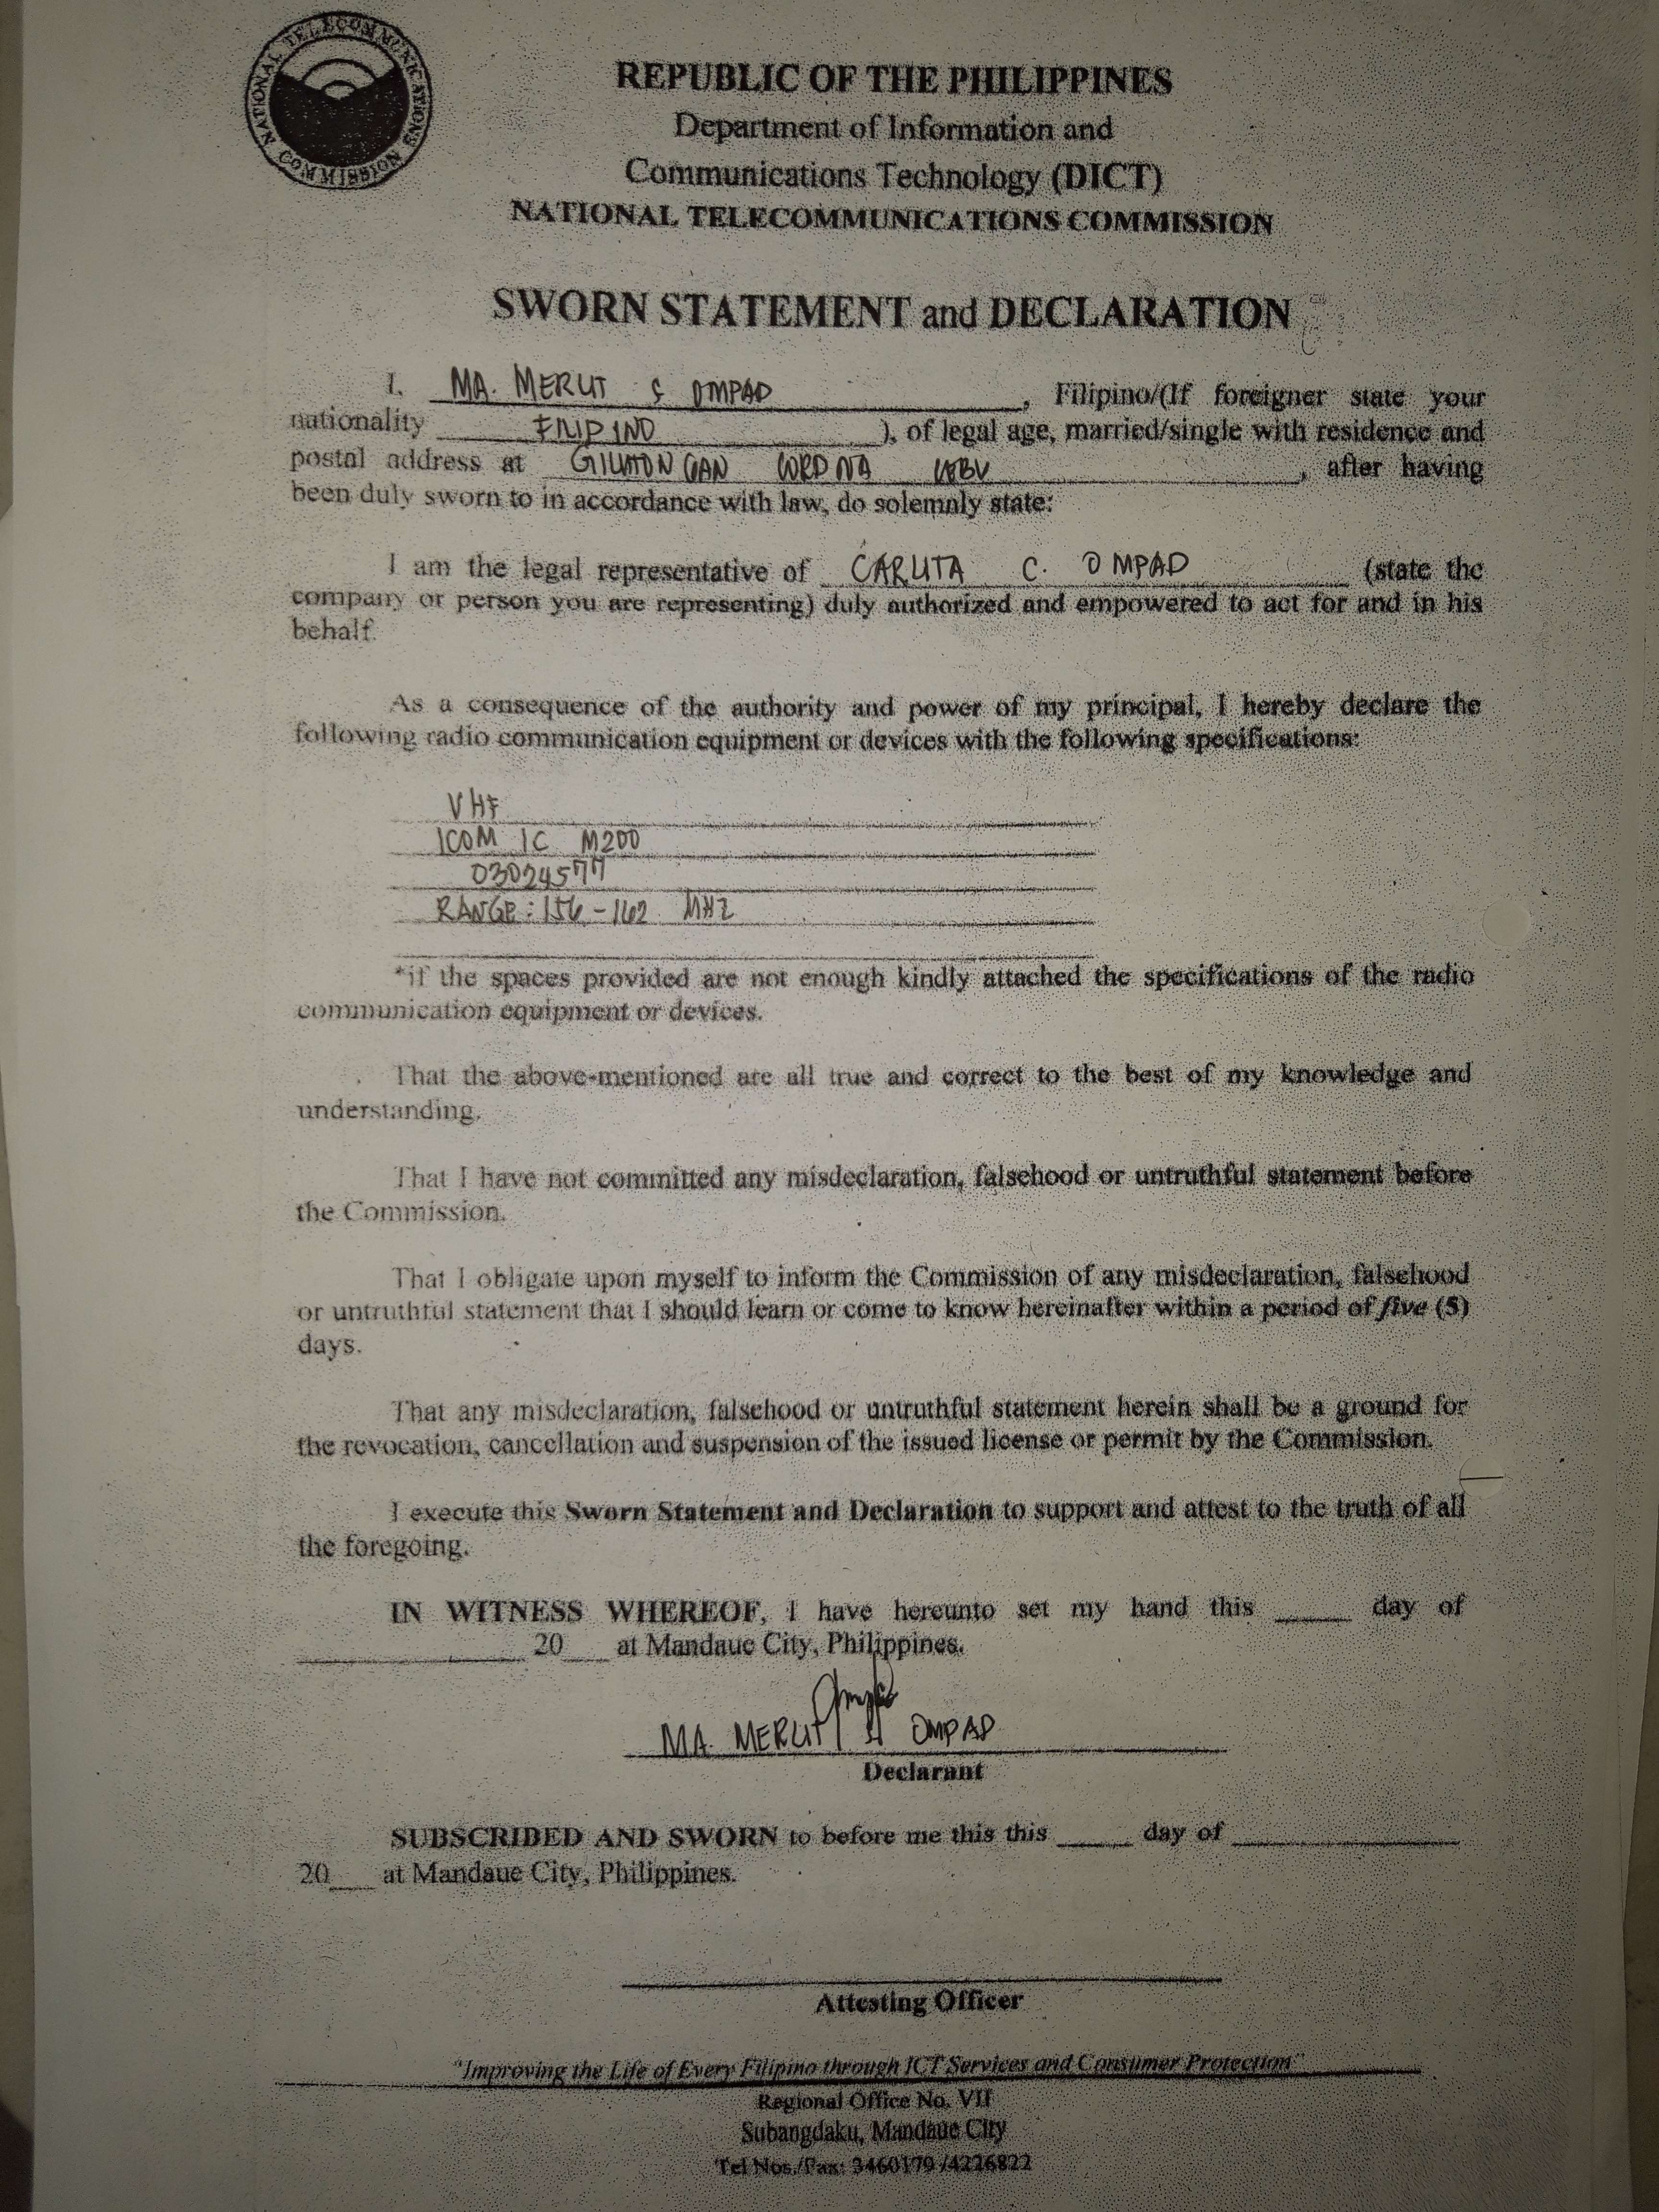 NATIONAL TELECOMMUNICATIONS COMMISSION
REPUBLIC OF THE PHILIPPINES
Department of Information and
Communications Technology (DICT)
NATIONAL TELECOMMUNICATIONS COMMISSION
SWORN STATEMENT and DECLARATION
I. MA. MERLIT C OMPAD, Filipino/(If foreigner state your
nationality FILIPINO ), of legal age, married/single with residence and
postal address at GILUTONGAN CORDOVA CEBU, after having
been duly sworn to in accordance with law, do solemnly state:
I am the legal representative of CARLITA C. OMPAD (state the
company or person you are representing) duly authorized and empowered to act for and in his
behalf.
As a consequence of the authority and power of my principal, I hereby declare the
following radio communication equipment or devices with the following specifications:
VHF
ICOM IC M200
03024577
RANGE: 156-162 MHZ
*if the spaces provided are not enough kindly attached the specifications of the radio
communication equipment or devices.
That the above-mentioned are all true and correct to the best of my knowledge and
understanding.
That I have not committed any misdeclaration, falsehood or untruthful statement before
the Commission.
That I obligate upon myself to inform the Commission of any misdeclaration, falsehood
or untruthful statement that I should learn or come to know hereinafter within a period of five (5)
days.
That any misdeclaration, falsehood or untruthful statement herein shall be a ground for
the revocation, cancellation and suspension of the issued license or permit by the Commission.
I execute this Sworn Statement and Declaration to support and attest to the truth of all
the foregoing.
IN WITNESS WHEREOF, I have hereunto set my hand this ____ day of
____ 20__ at Mandaue City, Philippines.
MA. MERLIT OMPAD
Declarant
SUBSCRIBED AND SWORN to before me this this ____ day of ____
20__ at Mandaue City, Philippines.
Attesting Officer
"Improving the Life of Every Filipino through ICT Services and Consumer Protection"
Regional Office No. VII
Subangdaku, Mandaue City
Tel Nos./Fax: 3460179 /4226822